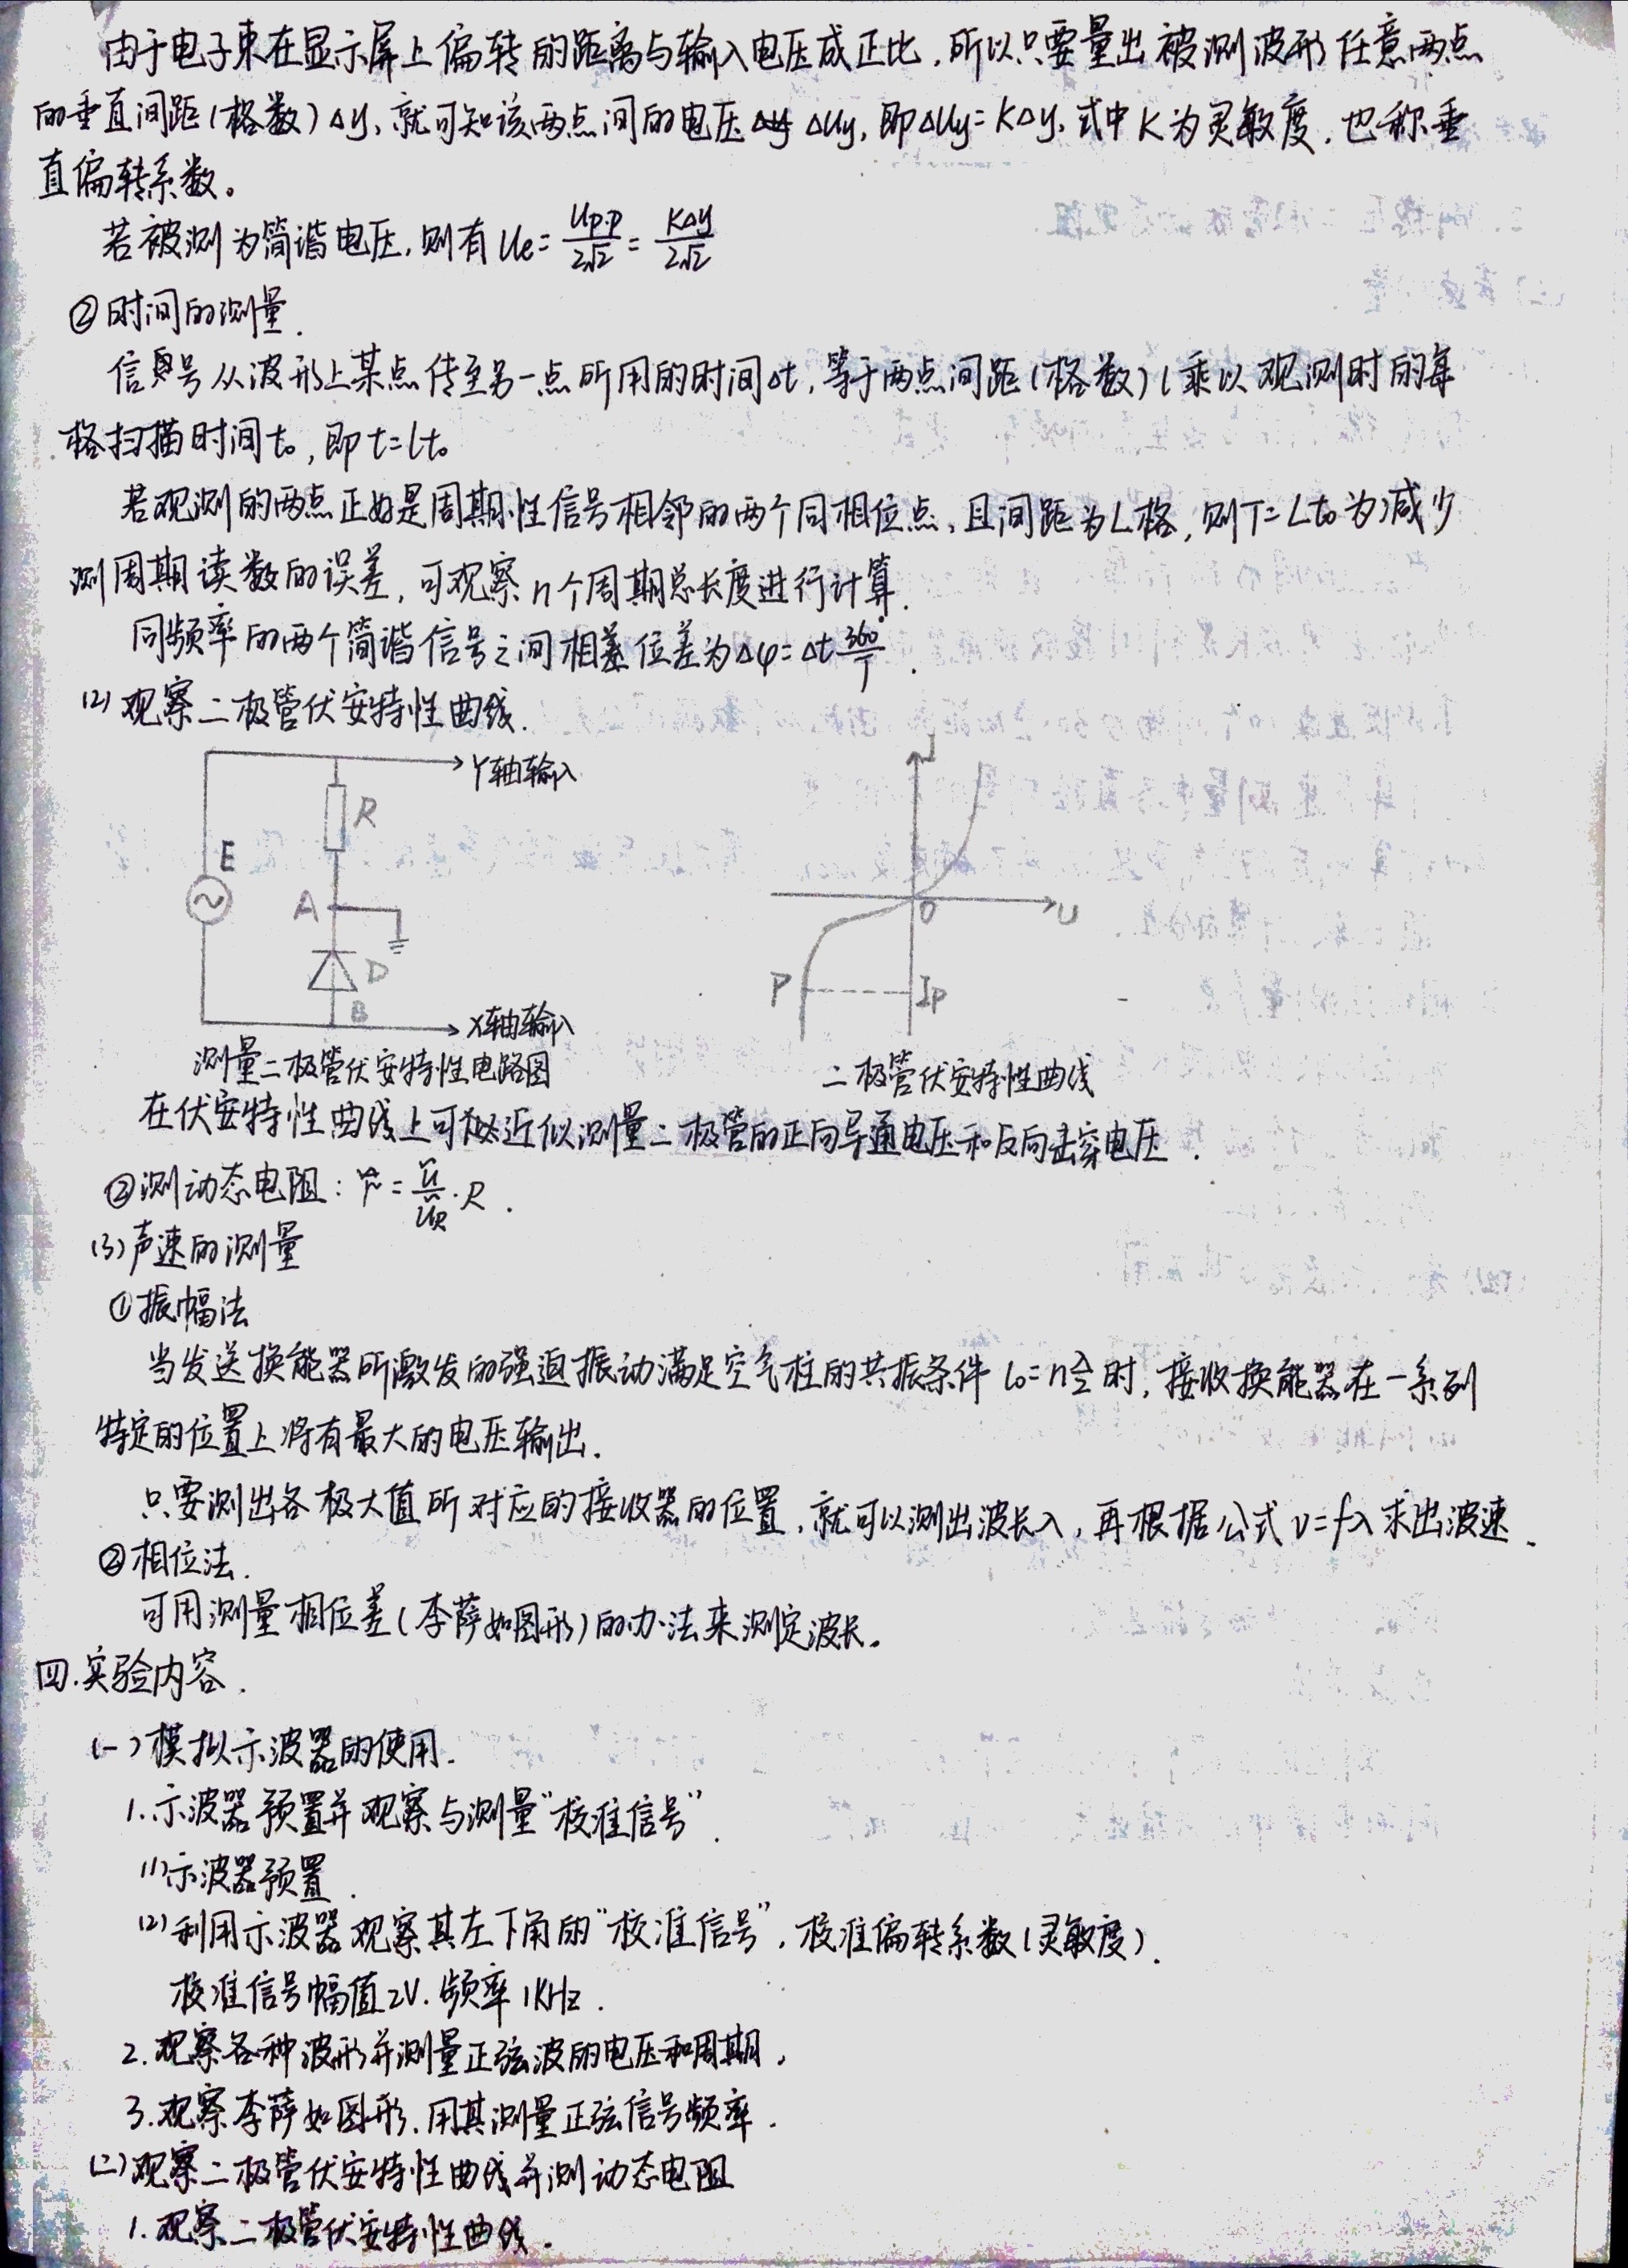 由于电子束在显示屏上偏转的距离与输入电压成正比,所以只要量出被测波形任意两点
的垂直间距(格数)Δy,就可知该两点间的电压 ΔUy,即ΔUy=KΔy,式中K为灵敏度,也称垂
直偏转系数。
若被测为简谐电压,则有 Ue=Up·p/2√2=KΔy/2√2
②时间的测量.
信号从波形上某点传至另一点所用的时间Δt,等于两点间距(格数)l乘以观测时的每
格扫描时间t₀,即t=lt₀
若观测的两点正好是周期性信号相邻的两个同相位点,且间距为L格,则T=Lt₀为减少
测周期读数的误差,可观察n个周期总长度进行计算.
同频率的两个简谐信号之间相位差为Δφ=Δt 360°/T.
(2)观察二极管伏安特性曲线.
Y轴输入
R
E
A
D
B
X轴输入
I
O
U
P
Ip
测量二极管伏安特性电路图
二极管伏安特性曲线
在伏安特性曲线上可近似测量二极管的正向导通电压和反向击穿电压.
②测动态电阻: r̃=ũ/ũR·R.
(3)声速的测量
①振幅法
当发送换能器所激发的强迫振动满足空气柱的共振条件 l₀=nλ/2时,接收换能器在一系列
特定的位置上将有最大的电压输出.
只要测出各极大值所对应的接收器的位置,就可以测出波长λ,再根据公式v=fλ求出波速.
②相位法.
可用测量相位差(李萨如图形)的办法来测定波长。
四.实验内容.
(一)模拟示波器的使用.
1.示波器预置并观察与测量“校准信号”.
(1)示波器预置.
(2)利用示波器观察其左下角的“校准信号”,校准偏转系数(灵敏度).
校准信号幅值2V.频率1KHz.
2.观察各种波形并测量正弦波的电压和周期,
3.观察李萨如图形,用其测量正弦信号频率.
(二)观察二极管伏安特性曲线并测动态电阻
1.观察二极管伏安特性曲线.